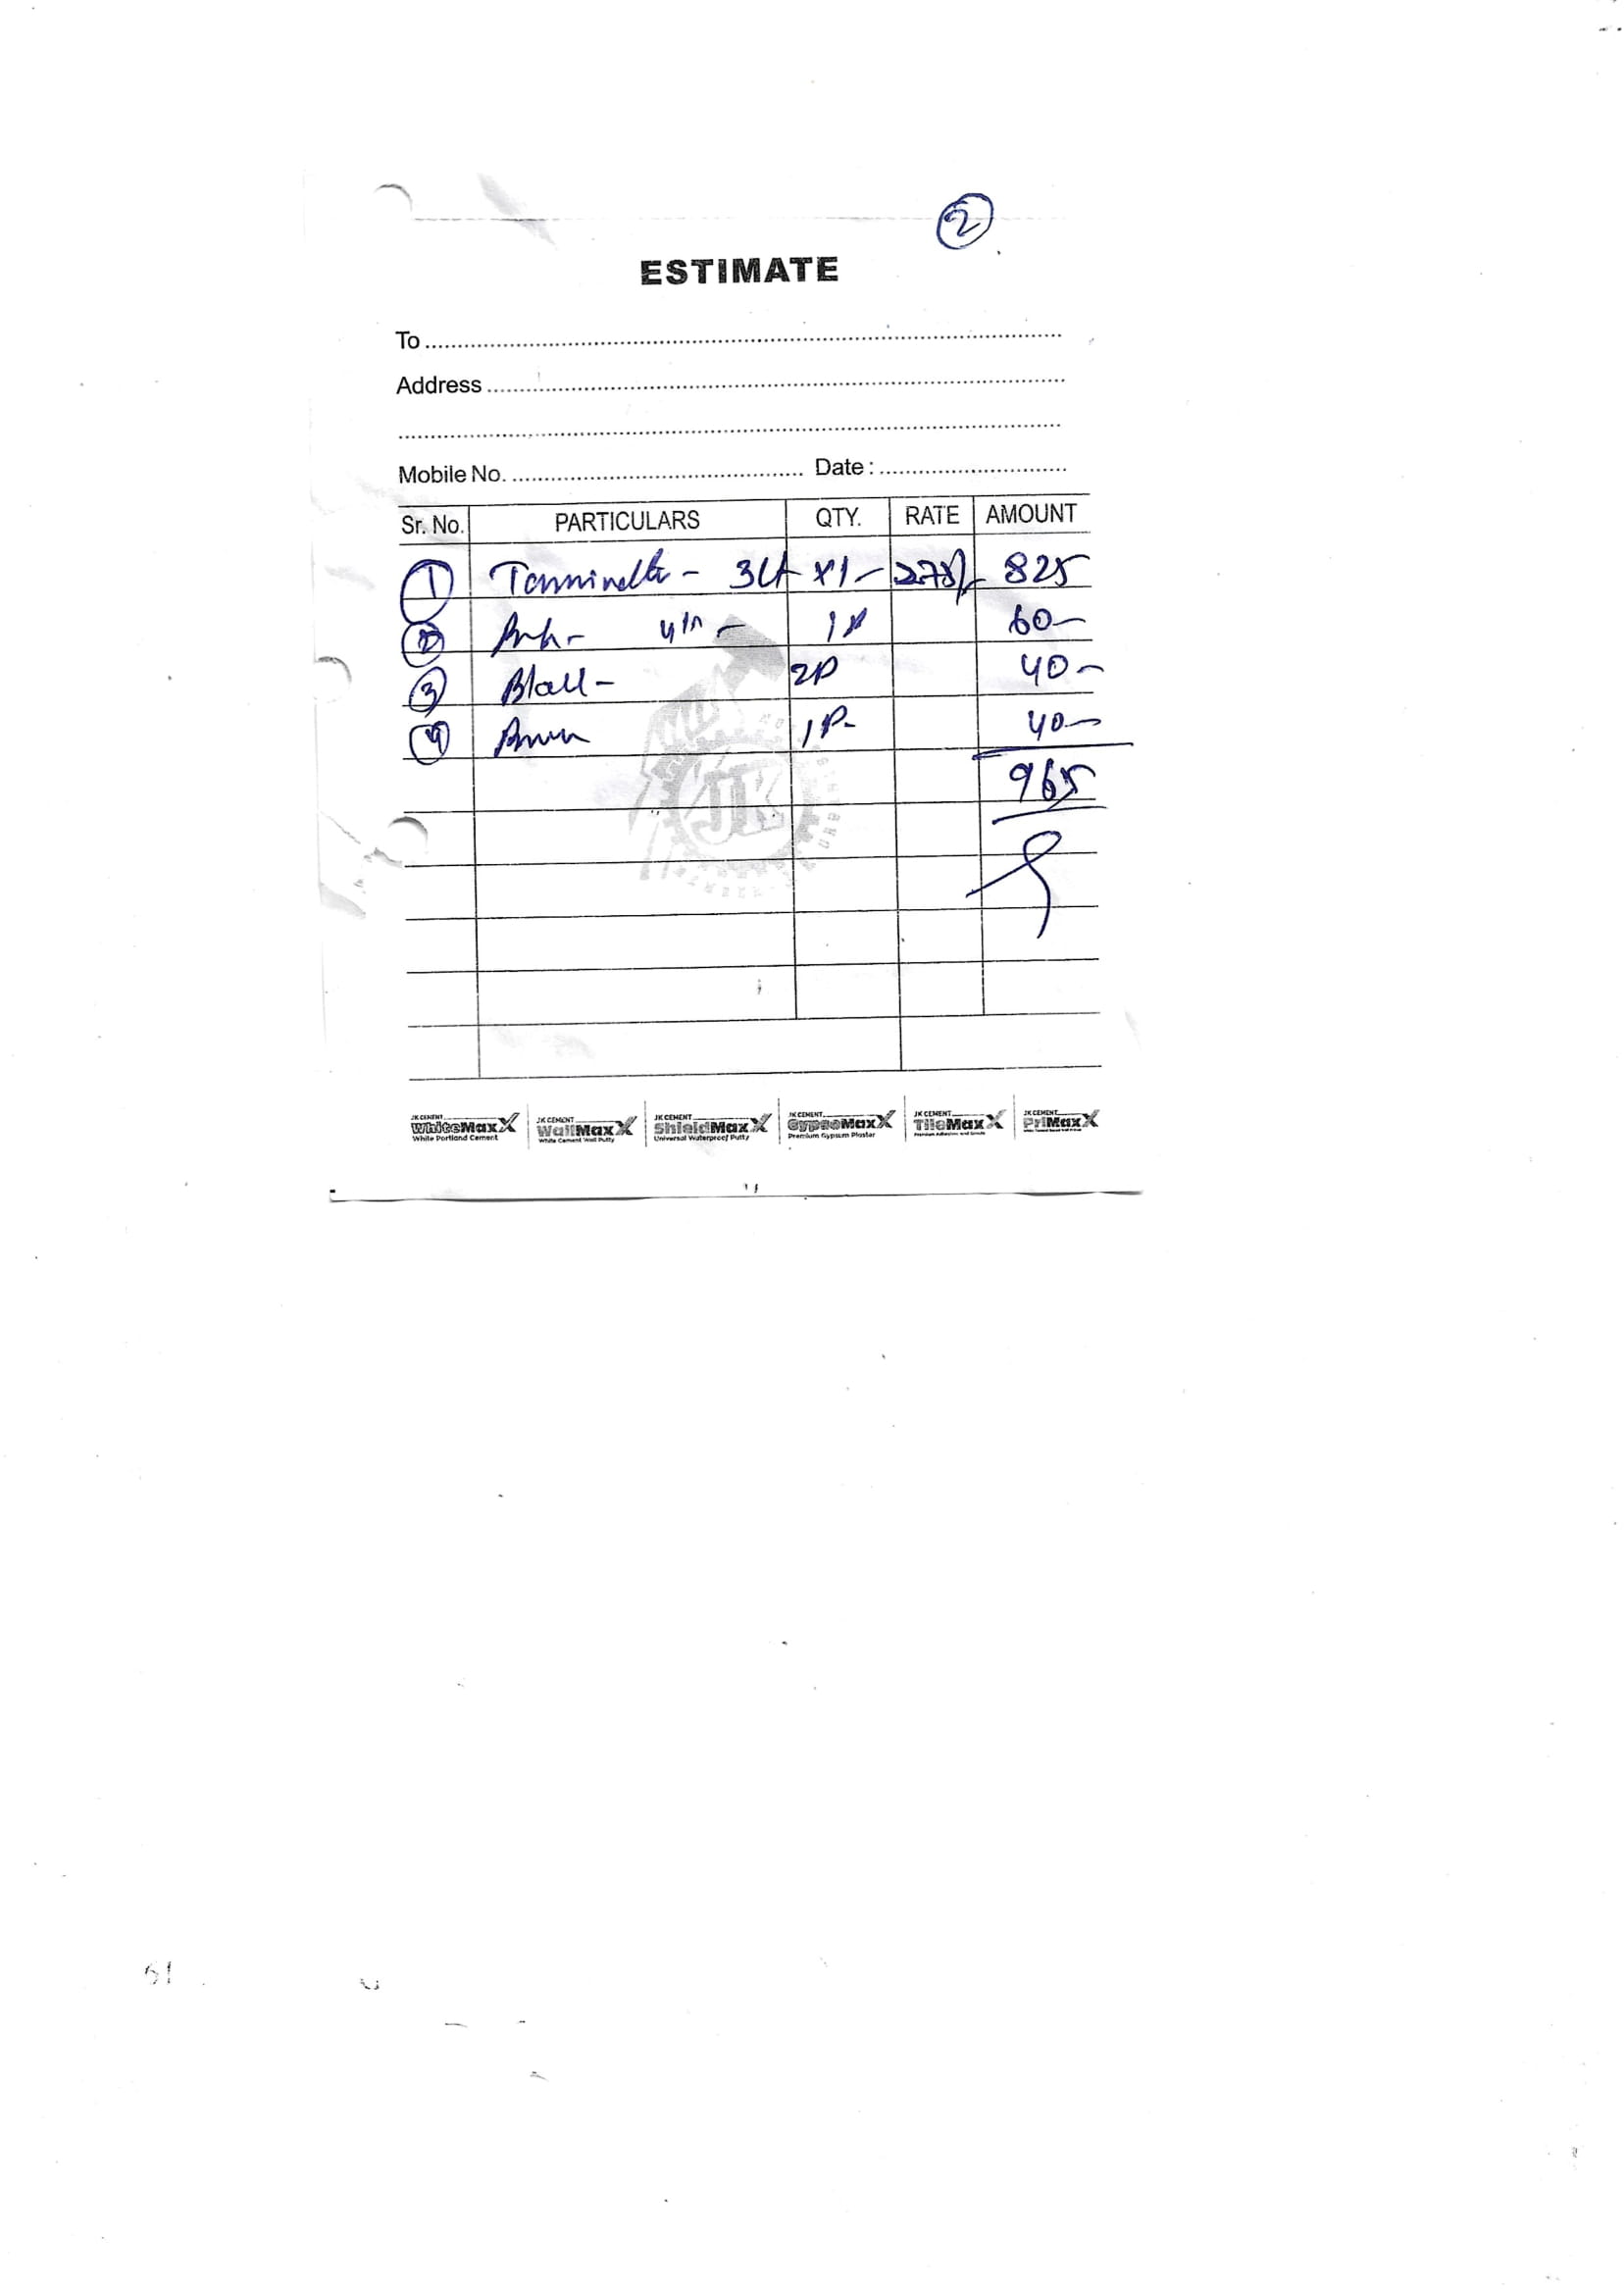 2
ESTIMATE
To
Address
Mobile No. Date:
Sr. No. PARTICULARS QTY. RATE AMOUNT
1 - 3Lt x1 - 275/- 825
2 4in - 1P 60-
3 - 2P 40-
4 1P- 40-
965
JK
JK CEMENT WhiteMaxX White Portland Cement
JK CEMENT WallMaxX White Cement Wall Putty
JK CEMENT ShieldMaxX Universal Waterproof Putty
JK CEMENT GypsoMaxX Premium Gypsum Plaster
JK CEMENT TileMaxX
JK CEMENT PriMaxX